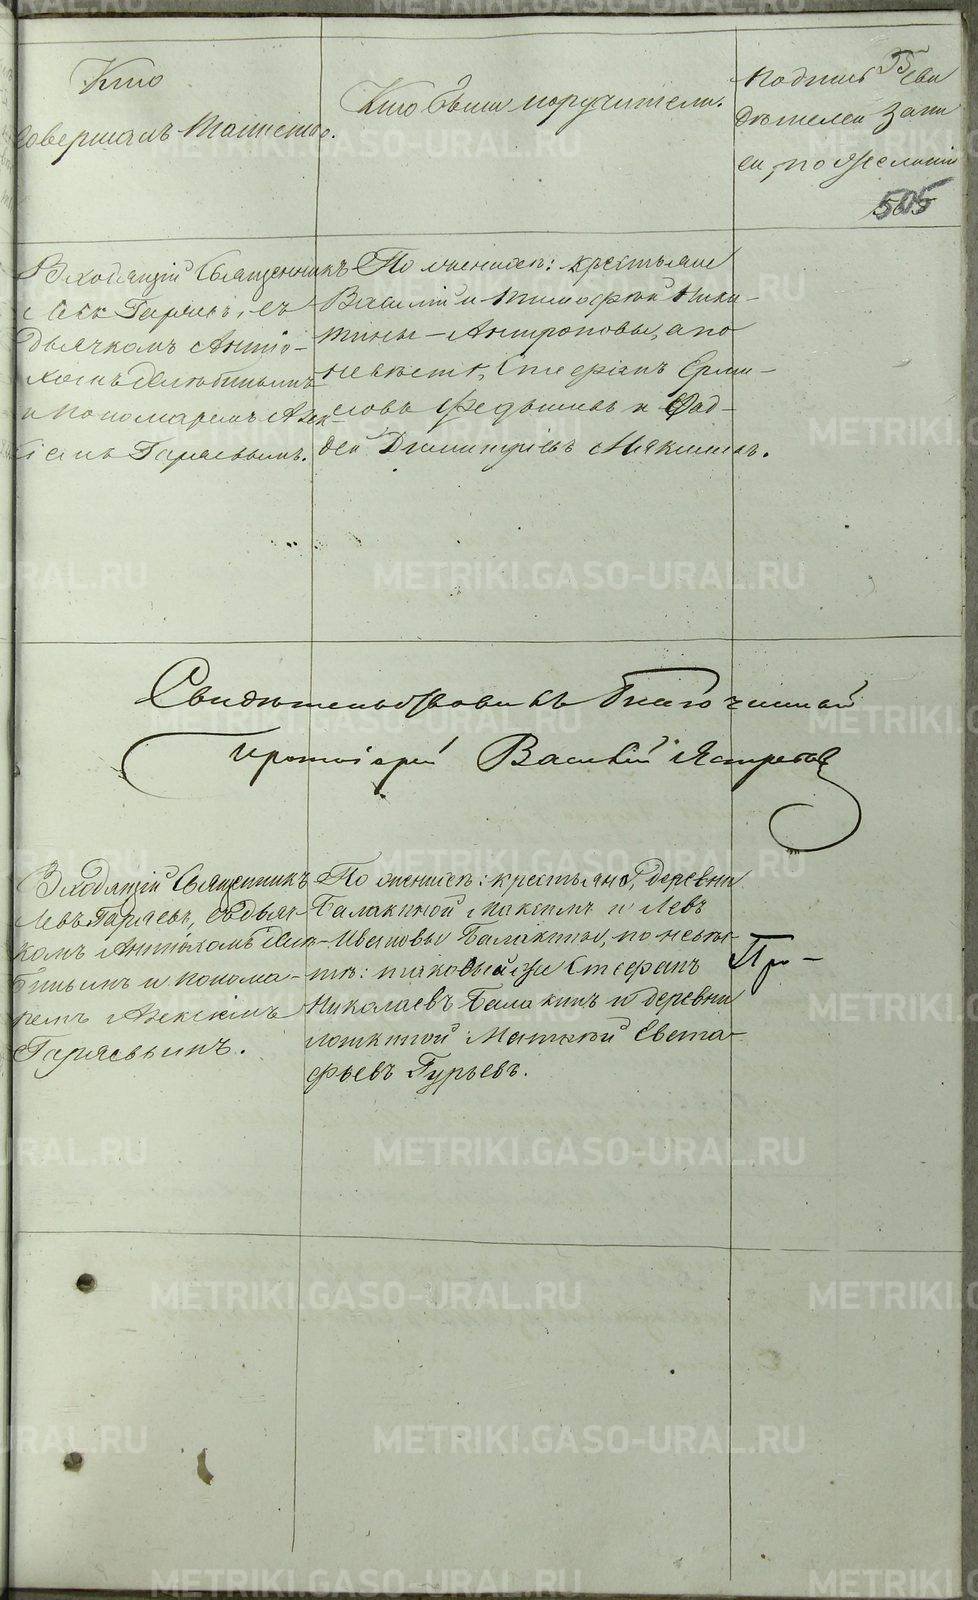 Кто
совершалъ таинство.
Кто были поручители.
Подпись сви
дѣтелей запи
си, по желанію
505
Входящій Священникъ
Левъ Гаряевъ, съ
дьячкомъ Антіо-
хомъ
и пономаремъ Алек
сіемъ Гаряевымъ.
По женихѣ: крестьяне
Василій и Тимофей Ники-
тины Антроповы, а по
невѣстѣ, Стефанъ Ерми-
ловъ и Фад-
дей Димитріевъ Мякишевъ.
Свидѣтельствовалъ Благочинный
протоіерей Василій Ястребовъ
Входящій Священникъ
Левъ Гаряевъ, съ дьяч-
комъ Антіохомъ
и понома-
ремъ Алексіемъ
Гаряевымъ.
По женихѣ: крестьяне, деревни
Балакиной Максимъ и Левъ
Ивановы Балакины, по невѣс-
тѣ: таковый же Стефанъ
Николаевъ Балакинъ и деревни
Матвей Евста-
фьевъ Гурьевъ.
При-
METRIKI.GASO-URAL.RU